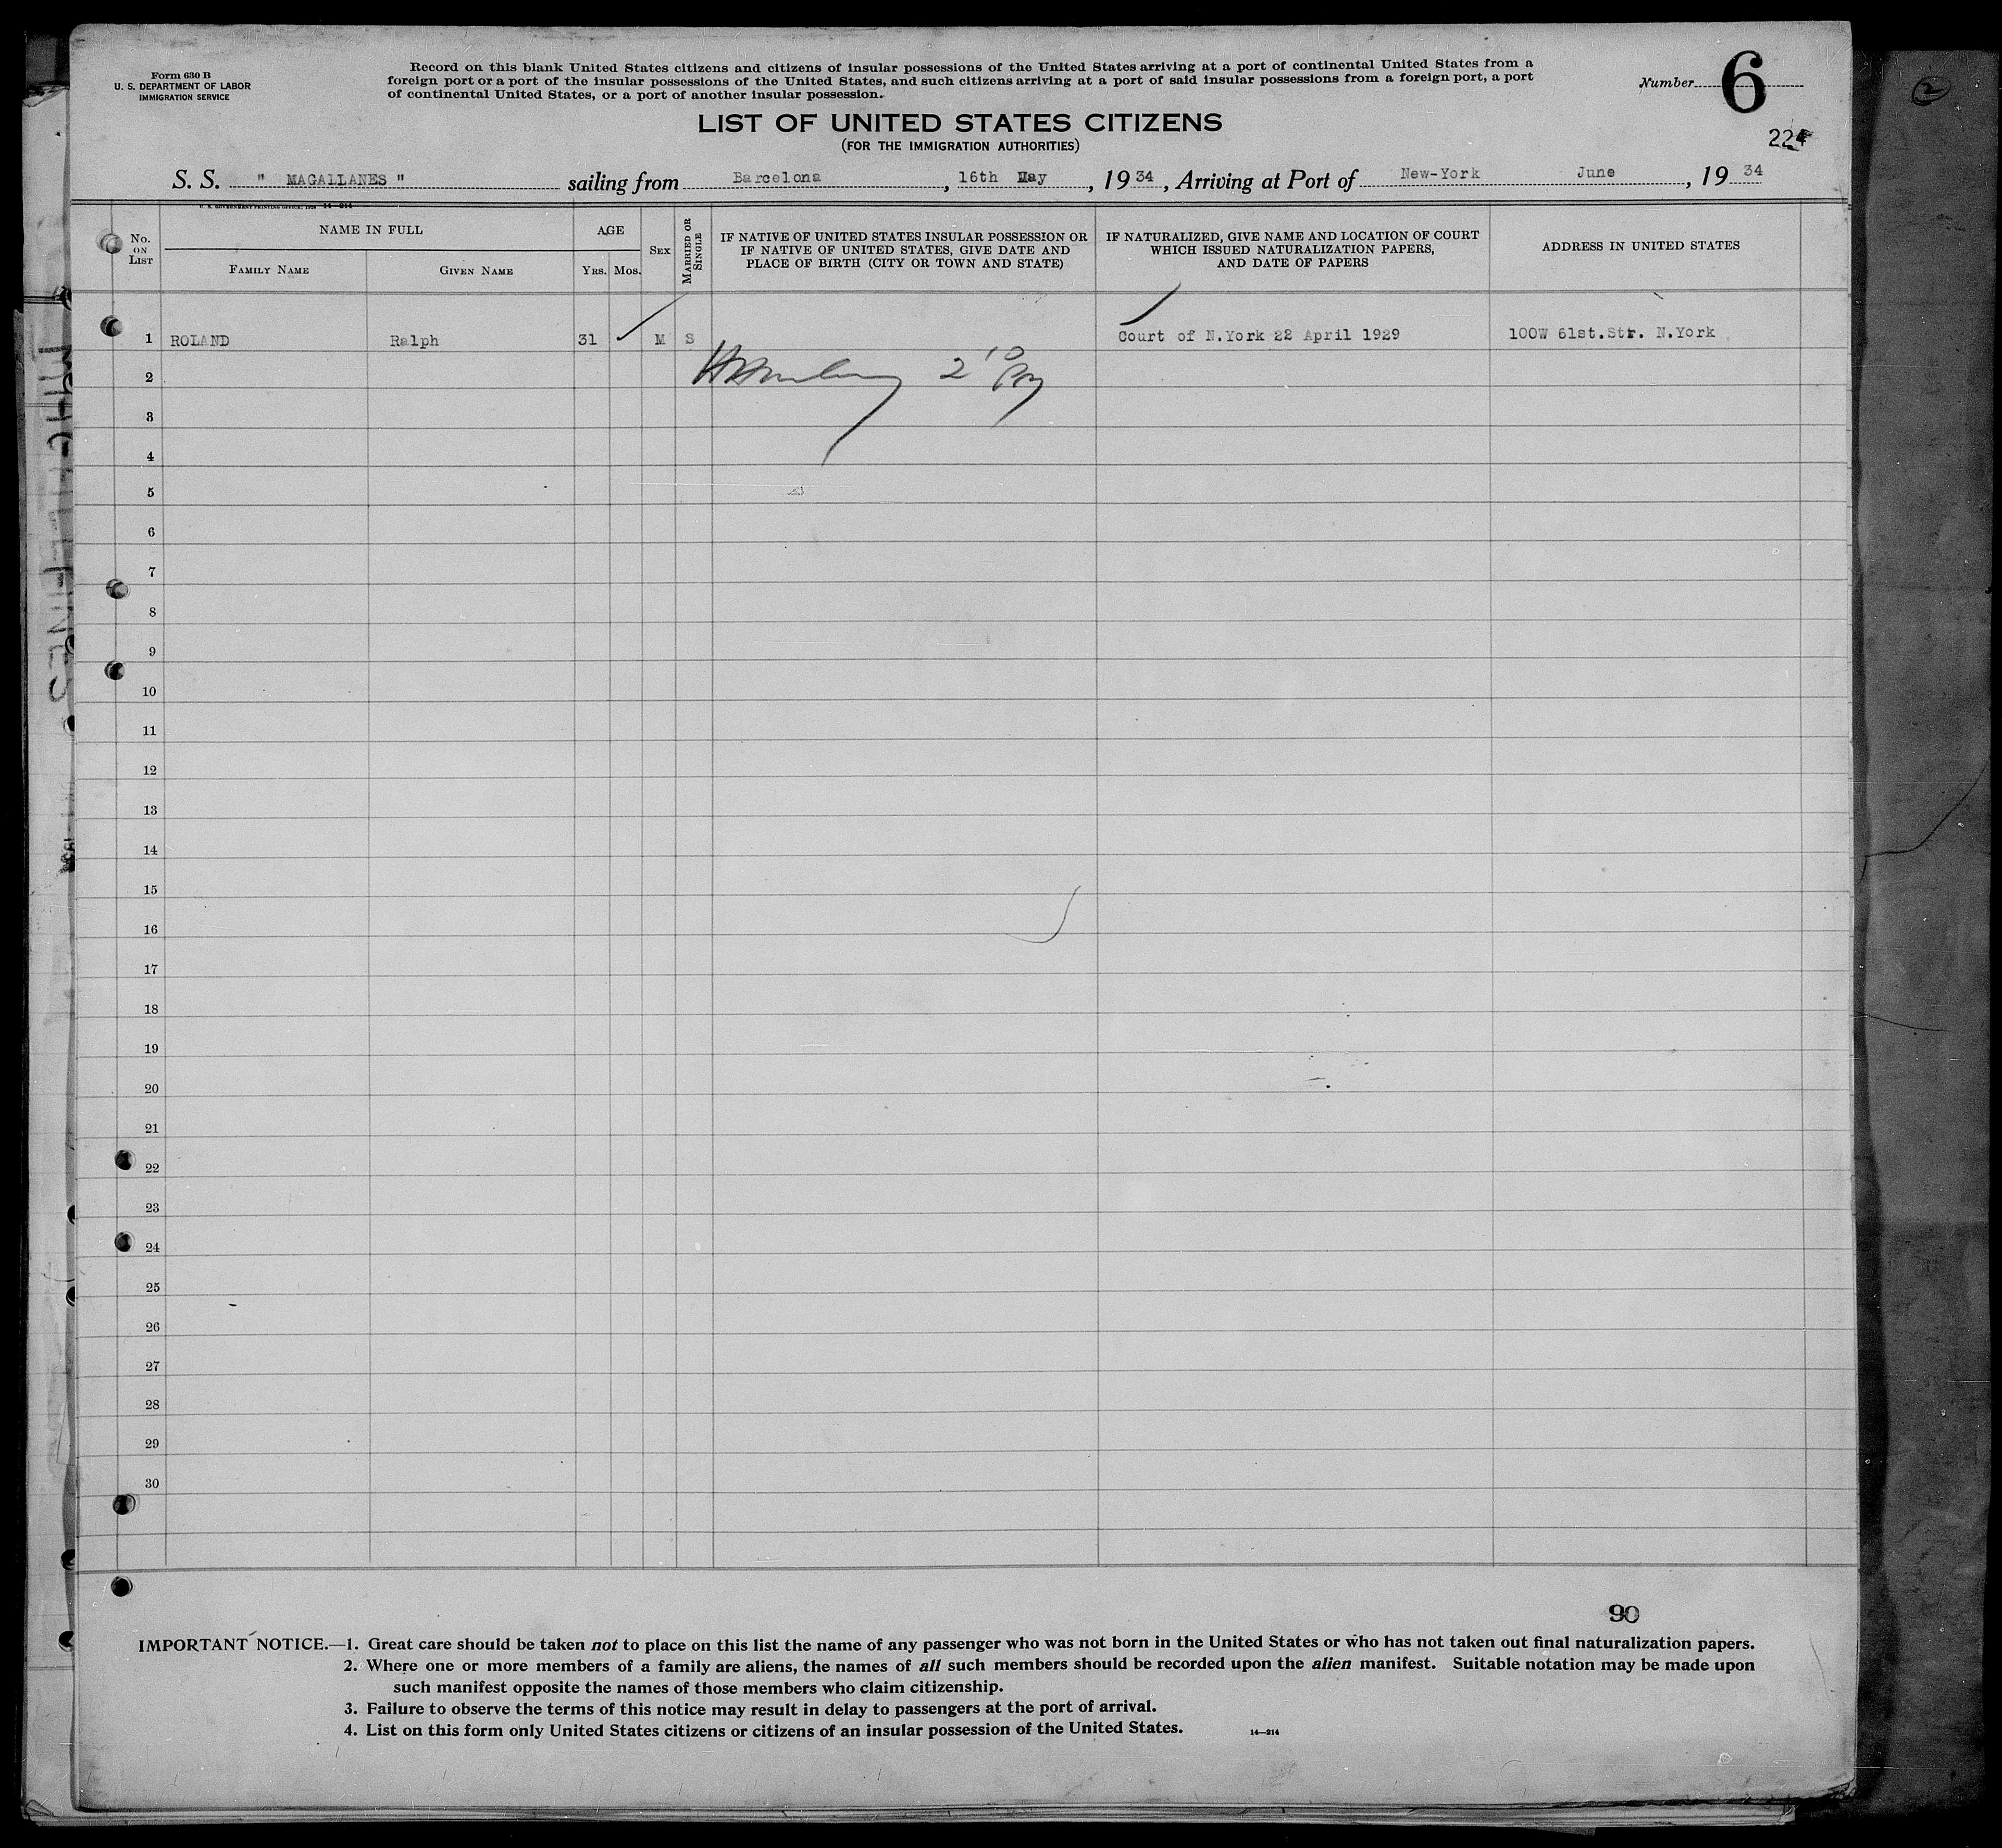 Form 630 B
U. S. DEPARTMENT OF LABOR
IMMIGRATION SERVICE
Record on this blank United States citizens and citizens of insular possessions of the United States arriving at a port of continental United States from a
foreign port or a port of the insular possessions of the United States, and such citizens arriving at a port of said insular possessions from a foreign port, a port
of continental United States, or a port of another insular possession.
Number 6
2
LIST OF UNITED STATES CITIZENS
(FOR THE IMMIGRATION AUTHORITIES)
S. S. " MAGALLANES " sailing from Barcelona, 16th May, 1934, Arriving at Port of New-York June, 1934
No. ON LIST
NAME IN FULL
FAMILY NAME GIVEN NAME
AGE
YRS. MOS.
SEX
MARRIED OR SINGLE
IF NATIVE OF UNITED STATES INSULAR POSSESSION OR
IF NATIVE OF UNITED STATES, GIVE DATE AND
PLACE OF BIRTH (CITY OR TOWN AND STATE)
IF NATURALIZED, GIVE NAME AND LOCATION OF COURT
WHICH ISSUED NATURALIZATION PAPERS,
AND DATE OF PAPERS
ADDRESS IN UNITED STATES
1 ROLAND Ralph 31 M S Court of N.York 22 April 1929 100W 61st.Str. N.York
2
3
4
5
6
7
8
9
10
11
12
13
14
15
16
17
18
19
20
21
22
23
24
25
26
27
28
29
30
90
IMPORTANT NOTICE.—1. Great care should be taken not to place on this list the name of any passenger who was not born in the United States or who has not taken out final naturalization papers.
2. Where one or more members of a family are aliens, the names of all such members should be recorded upon the alien manifest. Suitable notation may be made upon
such manifest opposite the names of those members who claim citizenship.
3. Failure to observe the terms of this notice may result in delay to passengers at the port of arrival.
4. List on this form only United States citizens or citizens of an insular possession of the United States.
14—214